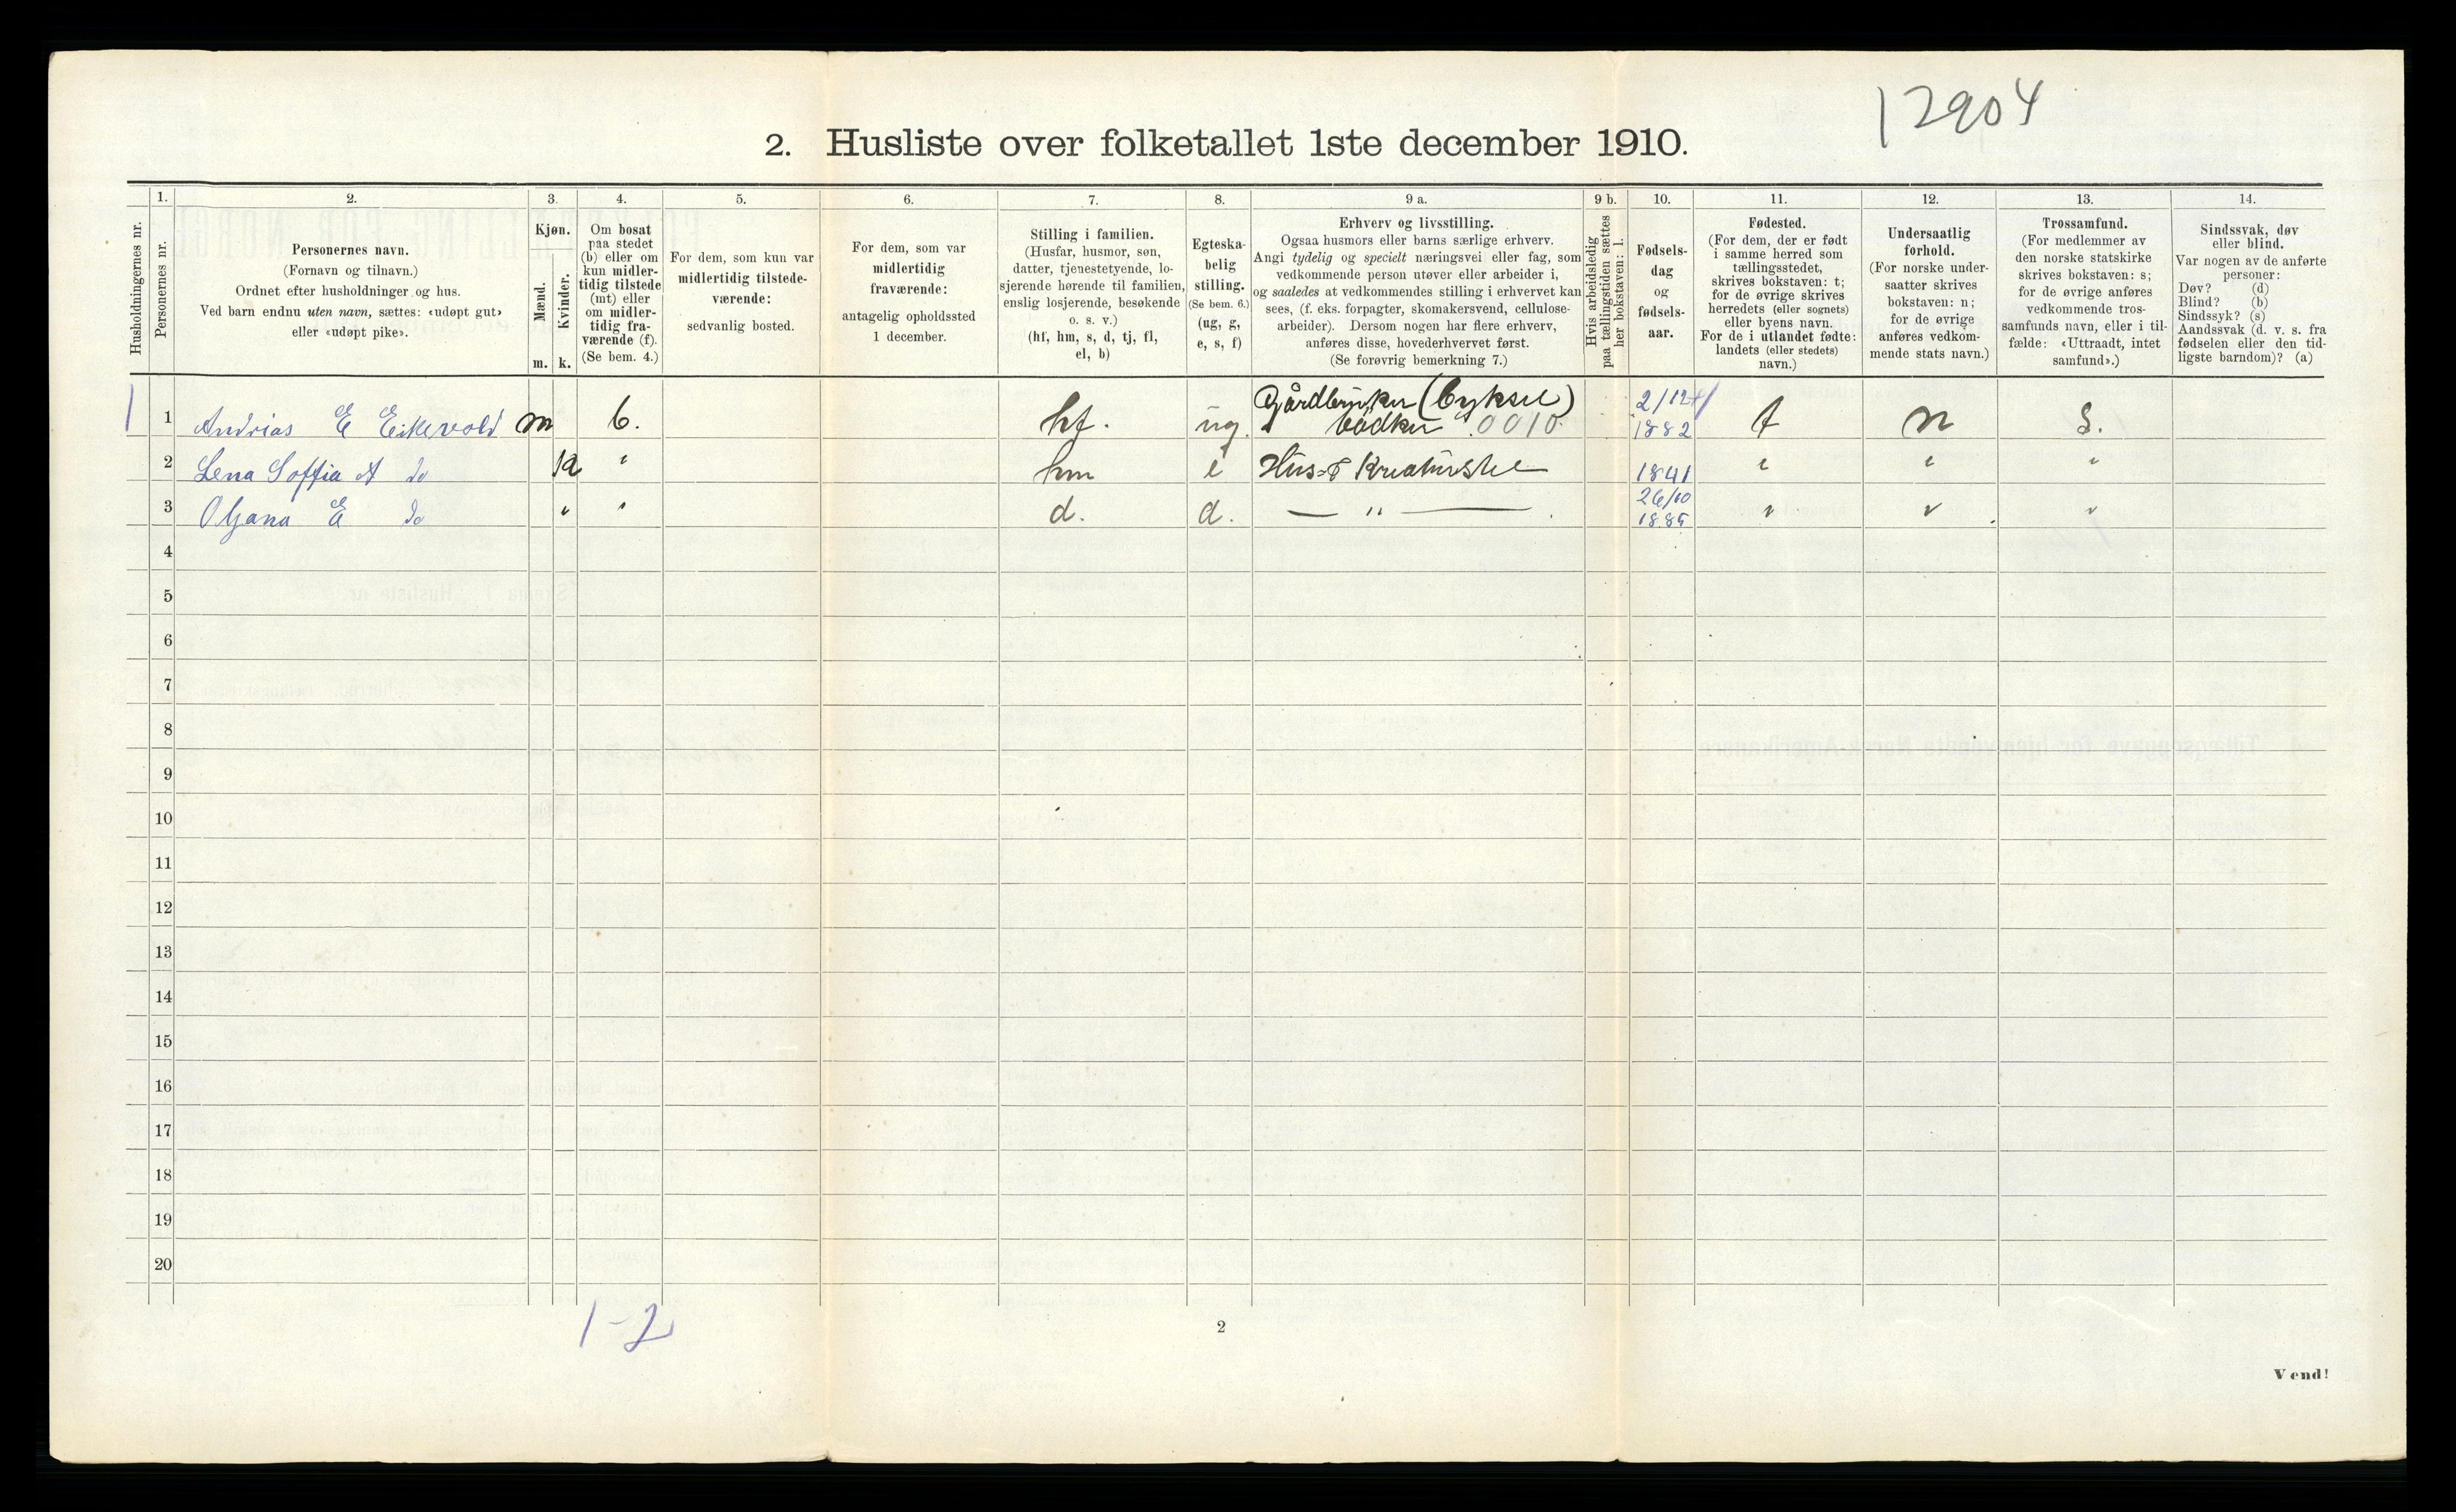 12904
2. Husliste over folketallet 1ste december 1910.
Husholdningernes nr.
1.
Personernes nr.
2.
Personernes navn.
(Fornavn og tilnavn.)
Ordnet efter husholdninger og hus.
Ved barn endnu uten navn, sættes: «udøpt gut»
eller «udøpt pike».
3.
Kjøn.
Mænd.
Kvinder.
m. k.
4.
Om bosat
paa stedet
(b) eller om
kun midler-
tidig tilstede
(mt) eller
om midler-
tidig fra-
værende (f).
(Se bem. 4.)
5.
For dem, som kun var
midlertidig tilstede-
værende:
sedvanlig bosted.
6.
For dem, som var
midlertidig
fraværende:
antagelig opholdssted
1 december.
7.
Stilling i familien.
(Husfar, husmor, søn,
datter, tjenestetyende, lo-
sjerende hørende til familien,
enslig losjerende, besøkende
o. s. v.)
(hf, hm, s, d, tj, fl,
el, b)
8.
Egteska-
belig
stilling.
(Se bem. 6.)
(ug, g,
e, s, f)
9 a.
Erhverv og livsstilling.
Ogsaa husmors eller barns særlige erhverv.
Angi tydelig og specielt næringsvei eller fag, som
vedkommende person utøver eller arbeider i,
og saaledes at vedkommendes stilling i erhvervet kan
sees, (f. eks. forpagter, skomakersvend, cellulose-
arbeider). Dersom nogen har flere erhverv,
anføres disse, hovederhvervet først.
(Se forøvrig bemerkning 7.)
9 b.
Hvis arbeidsledig
paa tællingstiden sættes
her bokstaven: l.
10.
Fødsels-
dag
og
fødsels-
aar.
11.
Fødested.
(For dem, der er født
i samme herred som
tællingsstedet,
skrives bokstaven: t;
for de øvrige skrives
herredets (eller sognets)
eller byens navn.
For de i utlandet fødte:
landets (eller stedets)
navn.)
12.
Undersaatlig
forhold.
(For norske under-
saatter skrives
bokstaven: n;
for de øvrige
anføres vedkom-
mende stats navn.)
13.
Trossamfund.
(For medlemmer av
den norske statskirke
skrives bokstaven: s;
for de øvrige anføres
vedkommende tros-
samfunds navn, eller i til-
fælde: «Uttraadt, intet
samfund».)
14.
Sindssvak, døv
eller blind.
Var nogen av de anførte
personer:
Døv? (d)
Blind? (b)
Sindssyk? (s)
Aandssvak (d. v. s. fra
fødselen eller den tid-
ligste barndom)? (a)
1 1 Andrias E Eikevold m b. hf. ug. Gårdbruker (byksel) bødker 0010 2/12 1882 t n s.
2 Lena Soffia A do k " hm e Hus- & Kreaturstel 1841 " " "
3 Olgana E do " " d. d. — " — 26/10 1885 " " "
4
5
6
7
8
9
10
11
12
13
14
15
16
17
18
19
20
1-2
2
Vend!